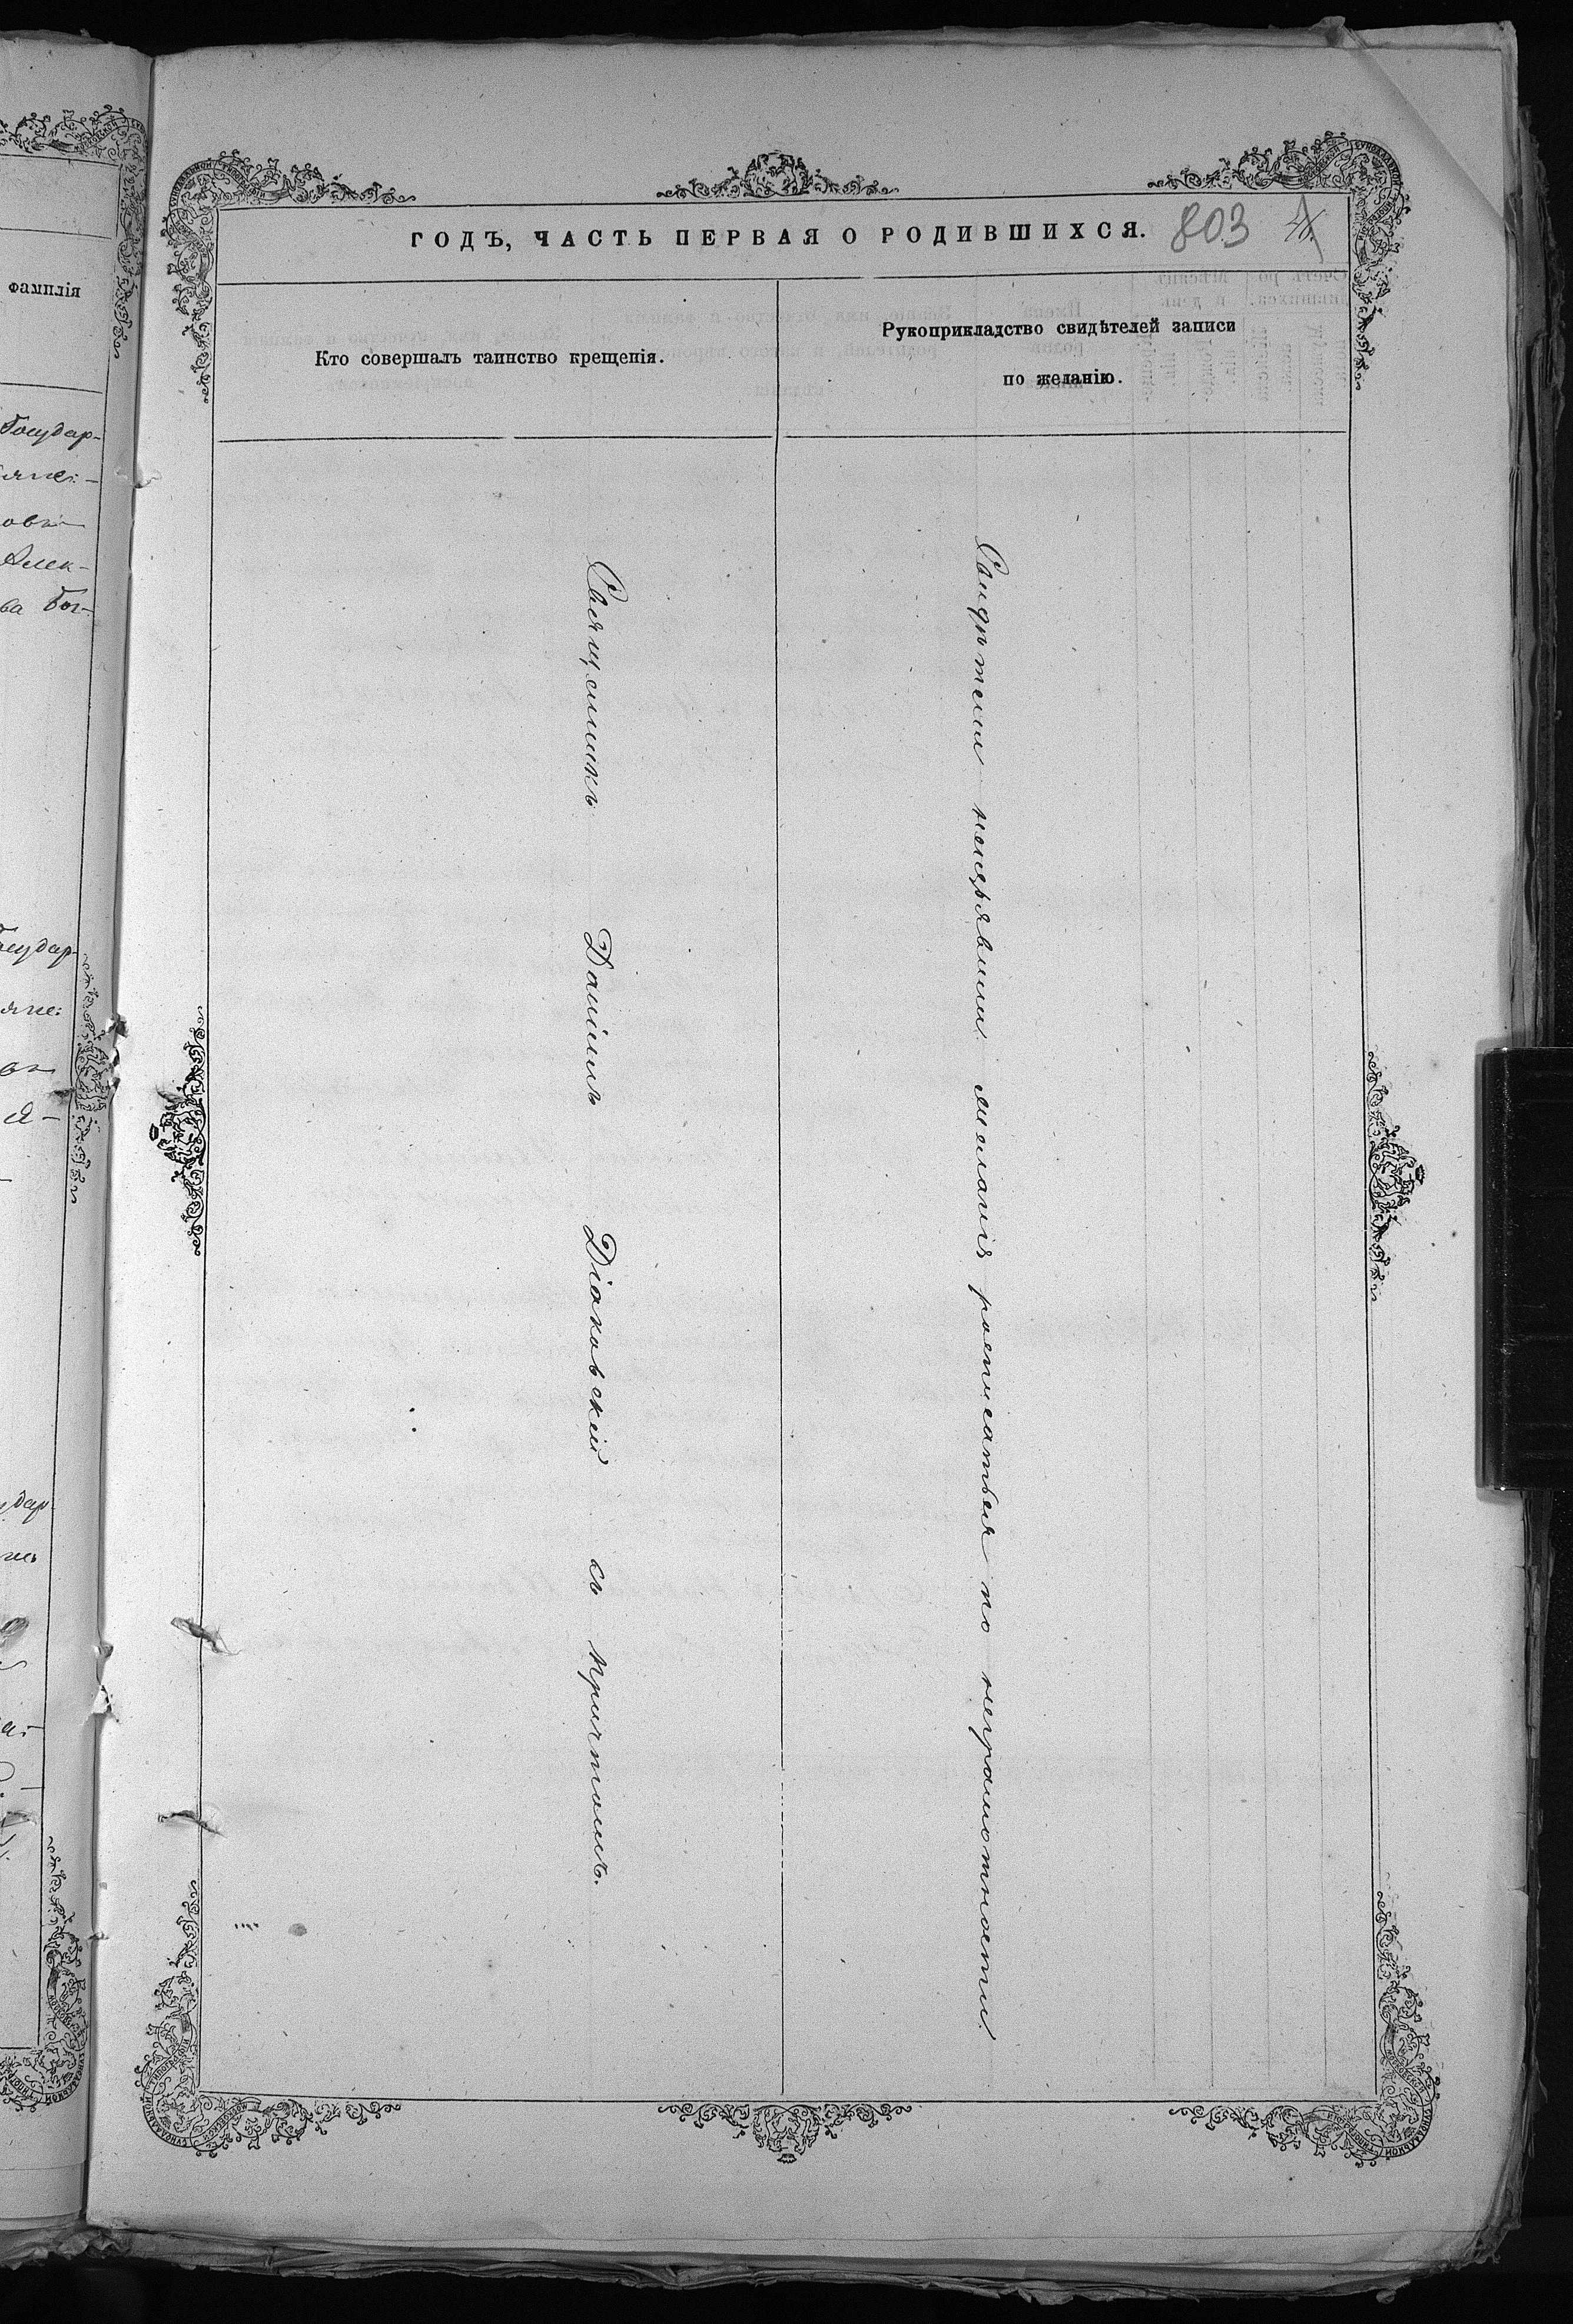 фамилія
Государ-
яне:
овъ
Алек-
ва Бог-
Государ-
яне:
ГОДЪ, ЧАСТЬ ПЕРВАЯ О РОДИВШИХСЯ.
803
Кто совершалъ таинство крещенія.
Рукоприкладство свидѣтелей записи
по желанію.
Священникъ Даніилъ Діаковскій съ причтомъ.
Свидѣтели неизъявили желанія росписаться по неграмотности.